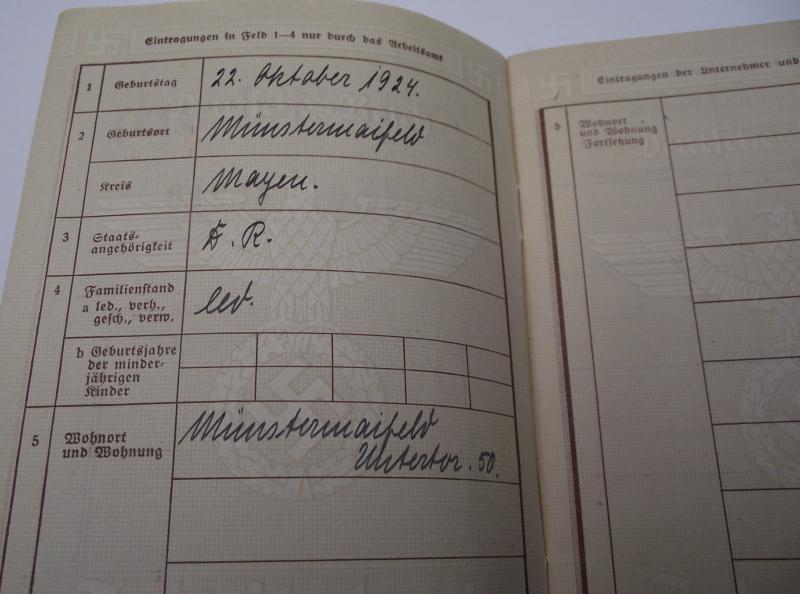 Eintragungen in Feld 1—4 nur durch das Arbeitsamt
1 Geburtstag 22. Oktober 1924.
2 Geburtsort Münstermaifeld
Kreis Mayen.
3 Staats-
angehörigkeit D. R.
4 Familienstand
a led., verh.,
gesch., verw. led.
b Geburtsjahre
der minder-
jährigen
Kinder
5 Wohnort
und Wohnung Münstermaifeld
Untertor. 50.
Eintragungen der Unternehmer und
5 Wohnort
und Wohnung
Fortsetzung